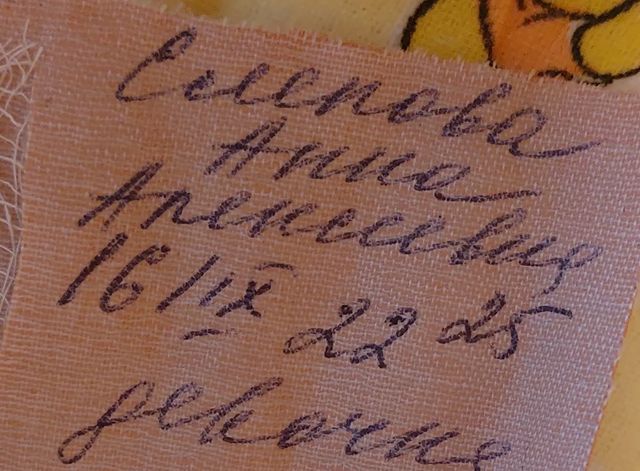 Анна
Алексеевна
16/IX 22 25
девочка